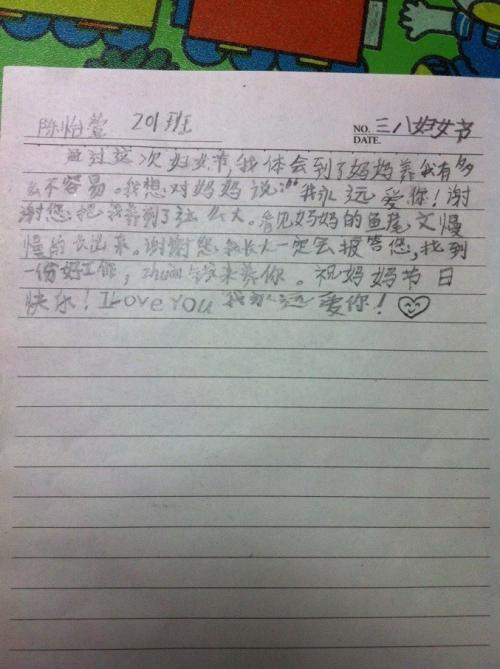 陈怡萱 201班
NO. 三八妇女节
DATE.
通过这次妇女节,我体会到了妈妈养我有多
么不容易。我想对妈妈说:“我永远爱你!谢
谢您把我养到了这么大。看见妈妈的鱼尾文慢
慢的长出来。谢谢您我长大一定会报答您,找到
一份好工作, 钱来养你。祝妈妈节日
快乐!I Love You 我永远爱你!